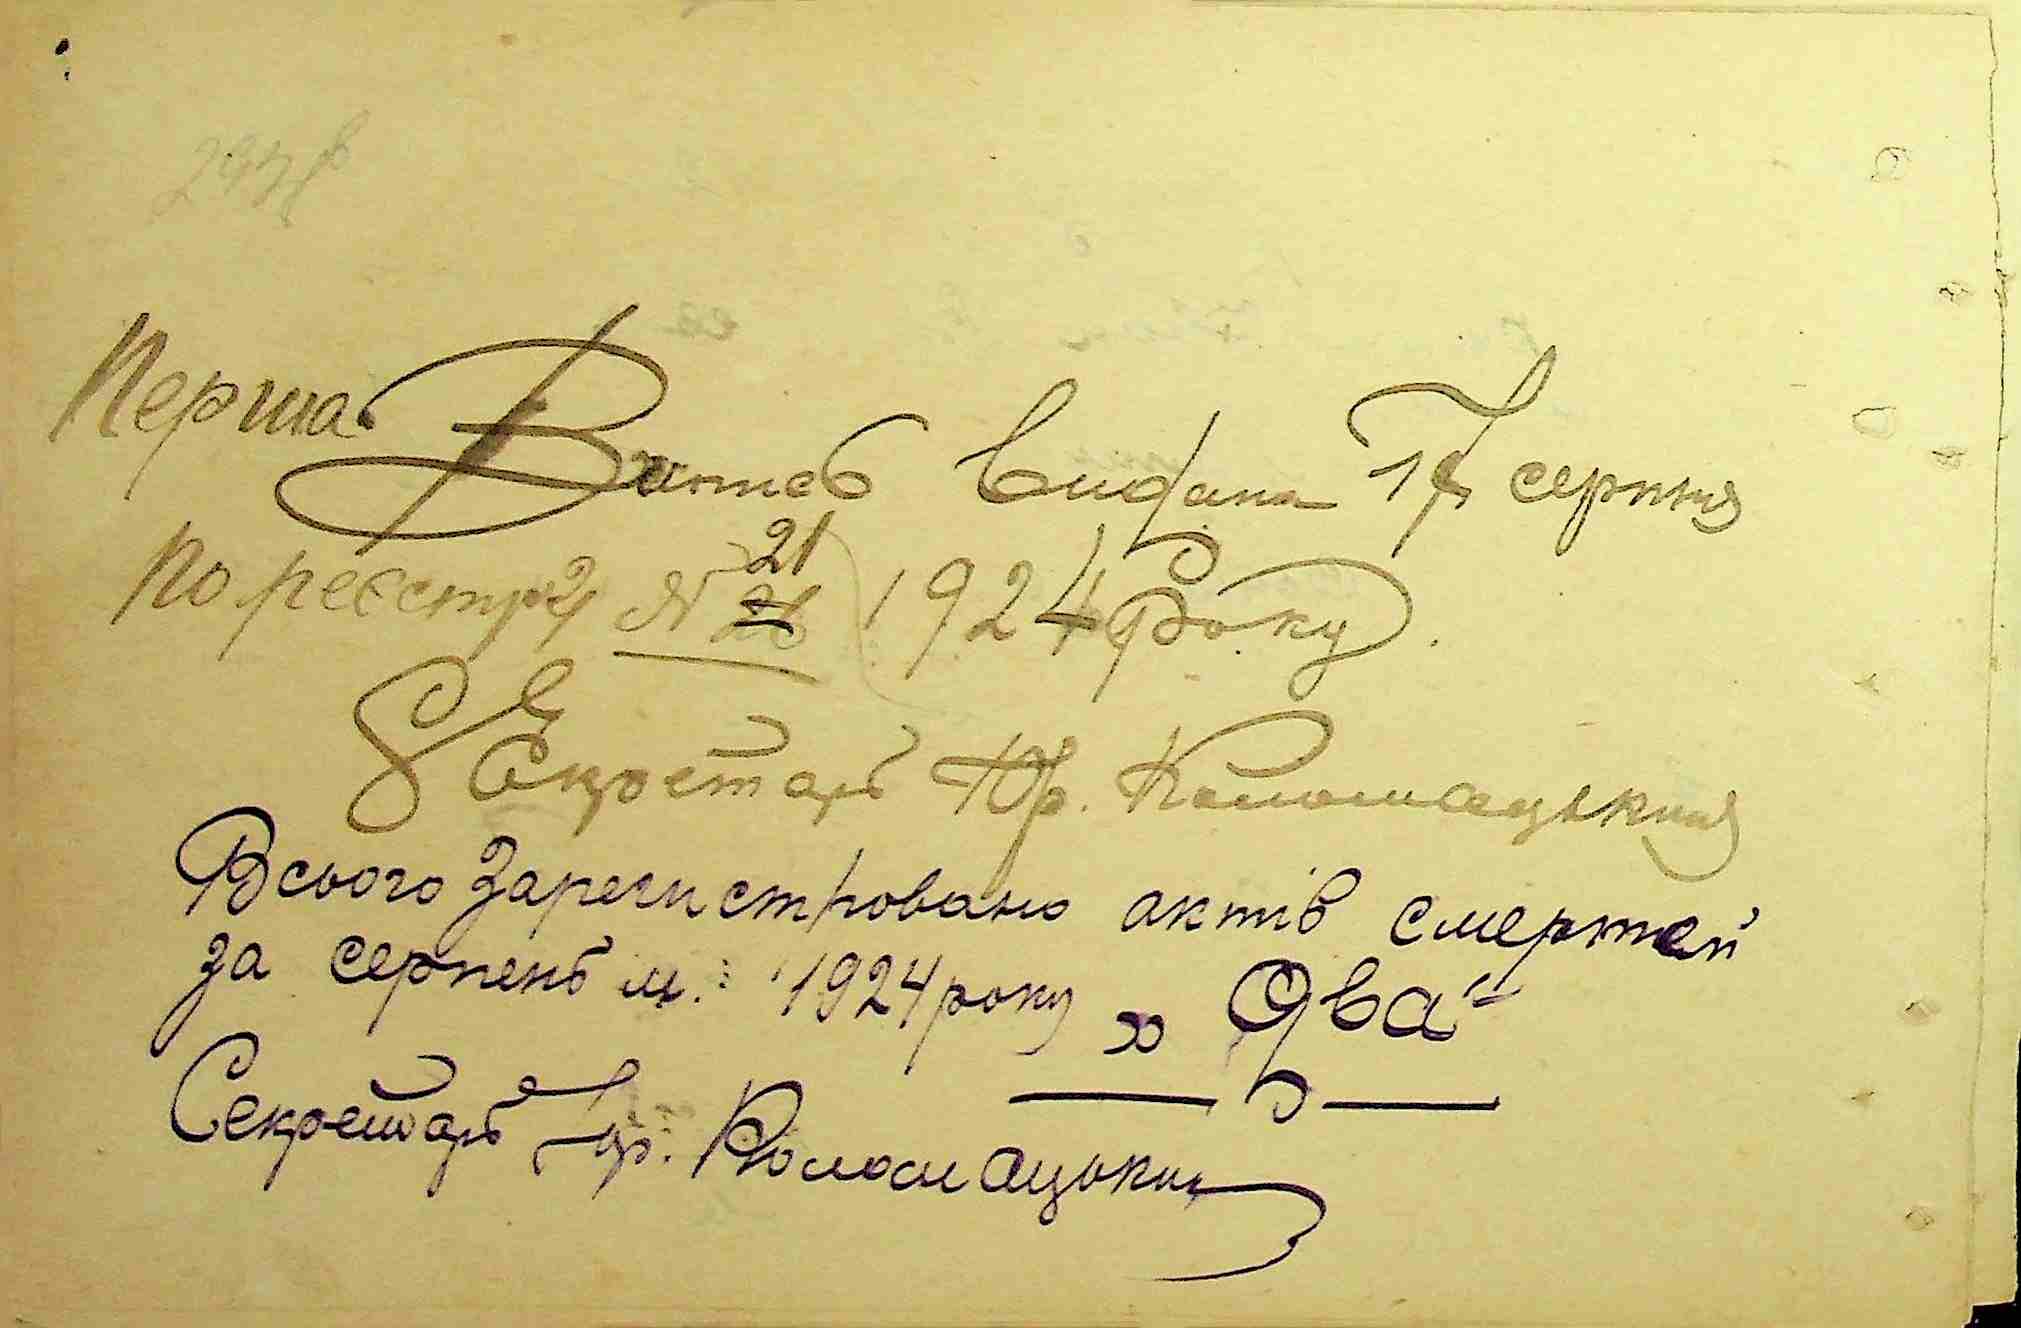 Перша Витяг видана 17 серпня
По реєстру № 21 1924 Року.
Секретарь Юр. Коломацький
Всього зарегистровано актів смертей
за серпень м. 1924 року „ Два “
Секретарь Юр. Коломацький